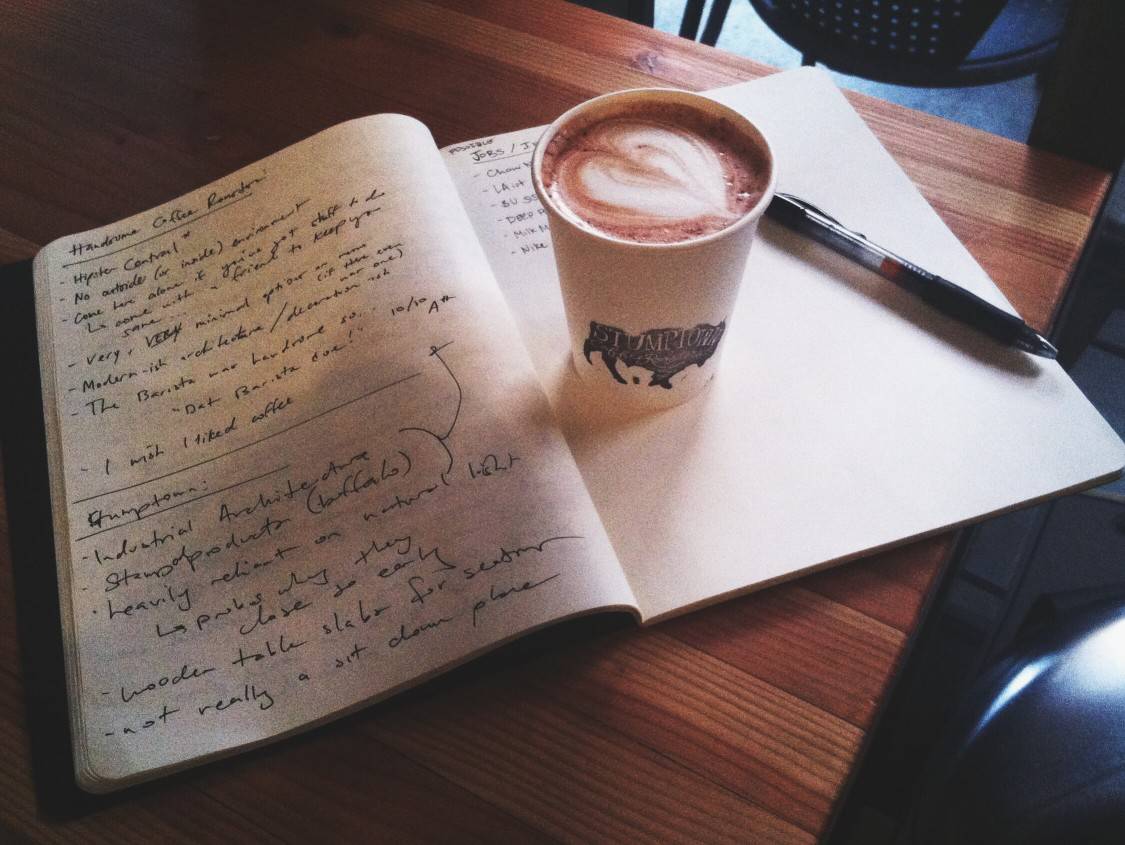 Handsome Coffee Roasters:
- Hipster Central *
- No outside (or inside) environment
- Come here alone if you've got stuff to do
↳ come with a friend to keep you
same...
- Very, very minimal options on menu
(if there even was one)
- Modern-ish architecture/decoration-ish
- The Barista was handsome so... 10/10
"Dat Barista doe!"
- I wish I liked coffee
Stumptown:
- Industrial Architecture
- products (buffalo)
- heavily reliant on natural light
↳ probs why they
close so early
- wooden table slabs for
- not really a sit down place
POSSIBLE
JOBS /
- DEEP
- Milk
- Nike
STUMPTOWN